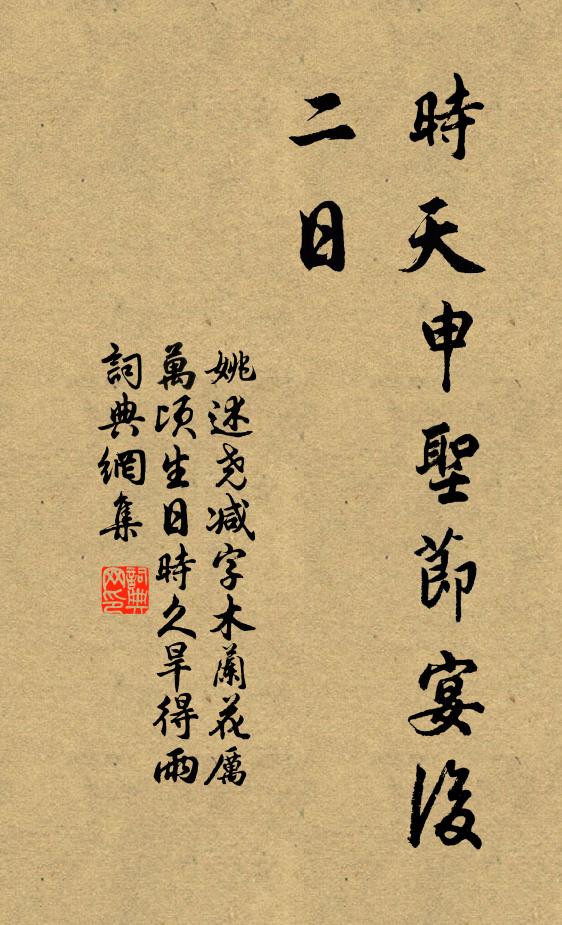 時天申聖節宴後
二日
姚述尧減字木蘭花厲
萬頃生日時久旱得雨
詞典網集
詞典
网印